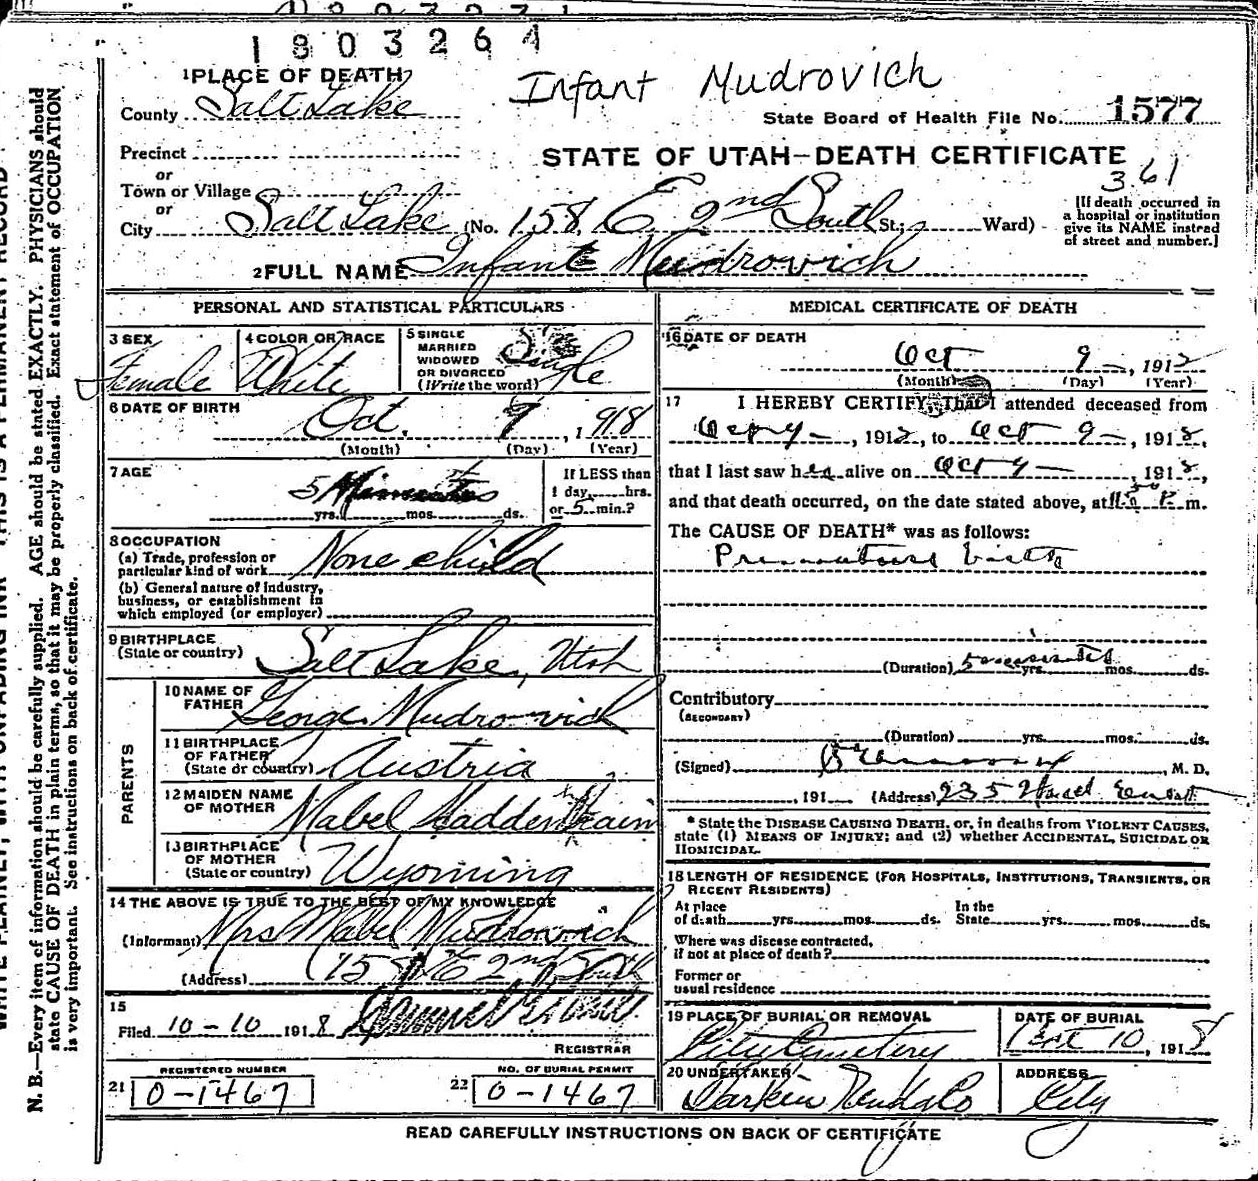 1803264
1 PLACE OF DEATH
Infant Mudrovich
County Salt Lake
State Board of Health File No. 1577
Precinct
STATE OF UTAH—DEATH CERTIFICATE
or
361
Town or Village
or
City Salt Lake (No. 158 E 2nd South St.; Ward)
[If death occurred in
a hospital or institution
give its NAME instead
of street and number.]
2 FULL NAME Infant Mudrovich
PERSONAL AND STATISTICAL PARTICULARS
3 SEX
Female
4 COLOR OR RACE
White
5 SINGLE
MARRIED
WIDOWED
OR DIVORCED
(Write the word)
Single
6 DATE OF BIRTH
Oct. 9, 1918
(Month) (Day) (Year)
7 AGE
5 Minutes
yrs. mos. ds.
If LESS than
1 day, hrs.
or 5 min.?
8 OCCUPATION
(a) Trade, profession or
particular kind of work None child
(b) General nature of industry,
business, or establishment in
which employed (or employer)
9 BIRTHPLACE
(State or country) Salt Lake, Utah
PARENTS
10 NAME OF
FATHER George Mudrovich
11 BIRTHPLACE
OF FATHER
(State or country) Austria
12 MAIDEN NAME
OF MOTHER Mabel
13 BIRTHPLACE
OF MOTHER
(State or country) Wyoming
14 THE ABOVE IS TRUE TO THE BEST OF MY KNOWLEDGE
(Informant) Mrs Mabel Mudrovich
(Address) 158 E 2nd South
15
Filed 10-10 1918
REGISTRAR
REGISTERED NUMBER
21 0-1467
NO. OF BURIAL PERMIT
22 0-1467
MEDICAL CERTIFICATE OF DEATH
16 DATE OF DEATH
Oct 9, 1918
(Month) (Day) (Year)
17 I HEREBY CERTIFY, That I attended deceased from
Oct 9, 1918, to Oct 9, 1918,
that I last saw her alive on Oct 9, 1918,
and that death occurred, on the date stated above, at P. m.
The CAUSE OF DEATH* was as follows:
Premature birth
(Duration) 5 minutes yrs. mos. ds.
Contributory
(SECONDARY)
(Duration) yrs. mos. ds.
(Signed) , M. D.
, 191 (Address) 235
* State the DISEASE CAUSING DEATH, or, in deaths from VIOLENT CAUSES,
state (1) MEANS OF INJURY; and (2) whether ACCIDENTAL, SUICIDAL OR
HOMICIDAL.
18 LENGTH OF RESIDENCE (FOR HOSPITALS, INSTITUTIONS, TRANSIENTS, OR
RECENT RESIDENTS)
At place In the
of death yrs. mos. ds. State yrs. mos. ds.
Where was disease contracted,
if not at place of death?
Former or
usual residence
19 PLACE OF BURIAL OR REMOVAL
City Cemetery
DATE OF BURIAL
Oct 10, 1918
20 UNDERTAKER
Larkin
ADDRESS
City
READ CAREFULLY INSTRUCTIONS ON BACK OF CERTIFICATE
N. B.—Every item of information should be carefully supplied. AGE should be stated EXACTLY. PHYSICIANS should
state CAUSE OF DEATH in plain terms, so that it may be properly classified. Exact statement of OCCUPATION
is very important. See instructions on back of certificate.